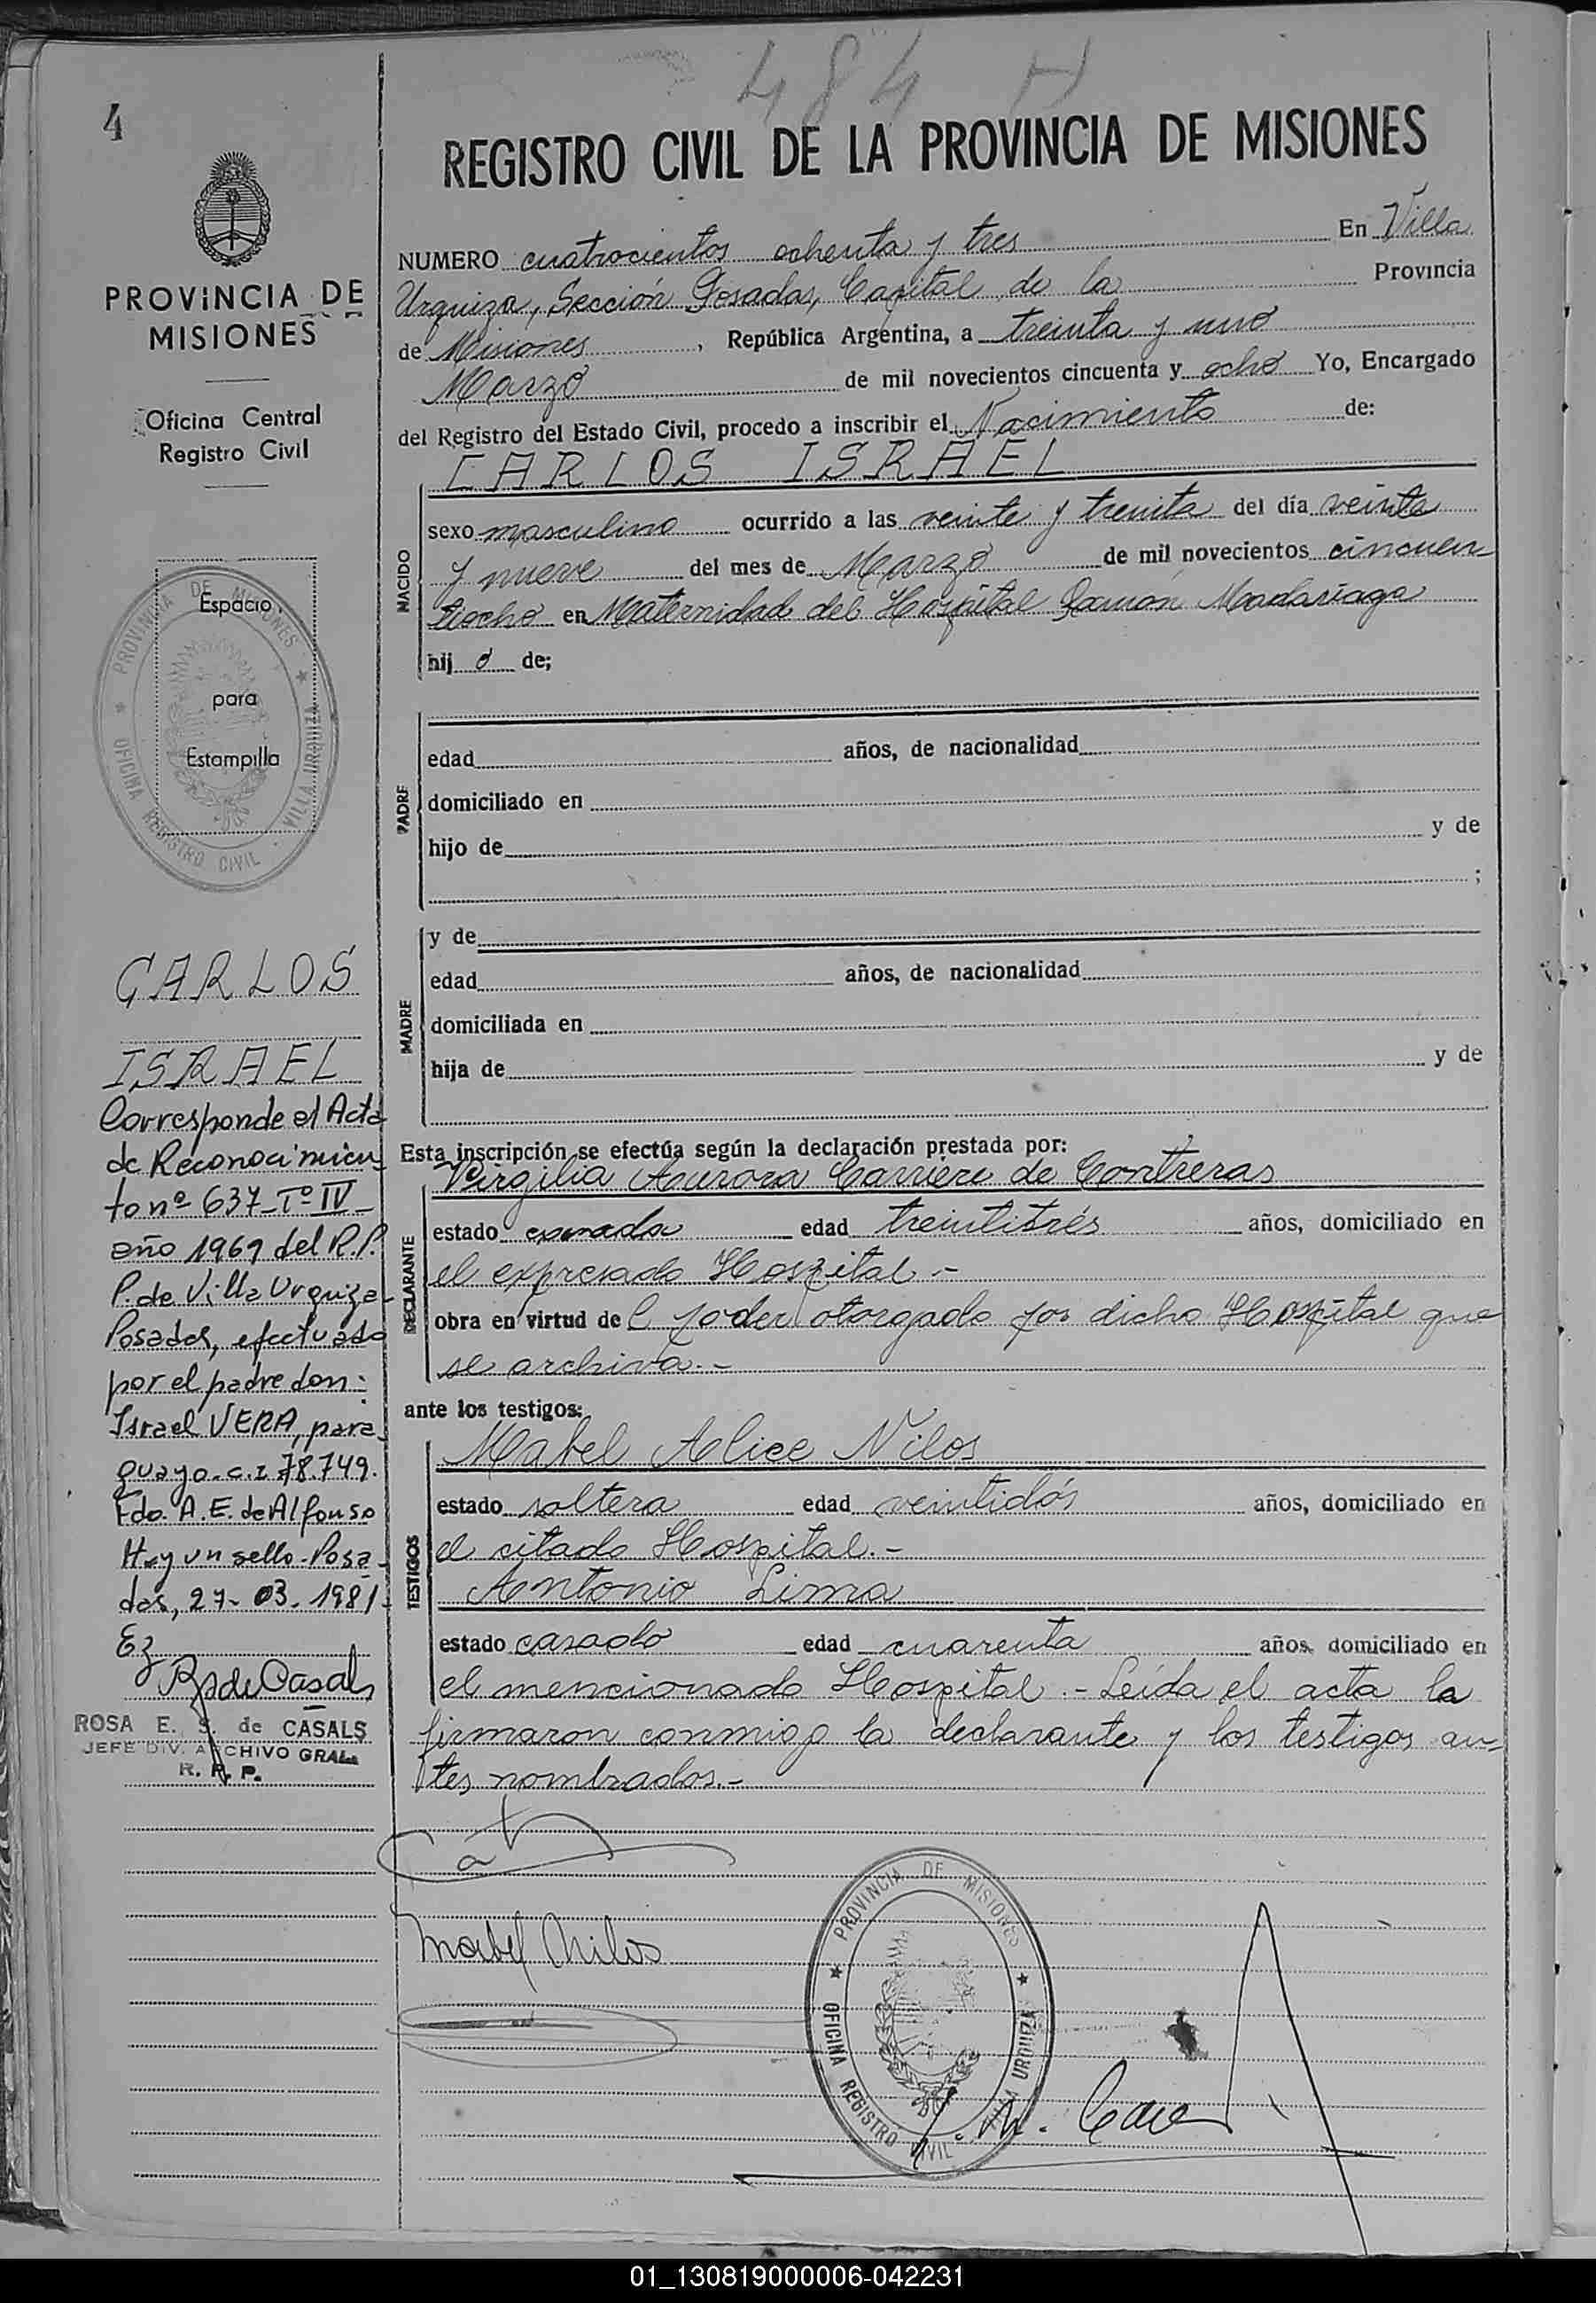 484 H
4
REGISTRO CIVIL DE LA PROVINCIA DE MISIONES
PROVINCIA DE
MISIONES
Oficina Central
Registro Civil
Espacio
para
Estampilla
PROVINCIA DE MISIONES
OFICINA REGISTRO CIVIL - VILLA URQUIZA
CARLOS
ISRAEL
Corresponde al Acta
de Reconocimien
to nº 637-Tº IV-
año 1969 del R.P.
P. de Villa Urquiza-
Posadas, efectuado
por el padre don:
Israel VERA, para
guayo. c.I. 78.749.
Fdo. A. E. de Alfonso
Hay un sello-Posa-
das, 27-03-1981-
Ez
ROSA E. S. de CASALS
JEFE DIV. ARCHIVO GRAL.
R. P. P.
NUMERO cuatrocientos ochenta y tres En Villa
Urquiza, Sección Posadas, Capital de la Provincia
de Misiones, República Argentina, a treinta y uno
Marzo de mil novecientos cincuenta y ocho Yo, Encargado
del Registro del Estado Civil, procedo a inscribir el Nacimiento de:
CARLOS ISRAEL
NACIDO
sexo masculino ocurrido a las veinte y treinta del día veinte
y nueve del mes de Marzo de mil novecientos cincuen
tiocho en Maternidad del Hospital Ramón Madariaga
hij o de;
PADRE
edad años, de nacionalidad
domiciliado en
hijo de y de
;
MADRE
y de
edad años, de nacionalidad
domiciliada en
hija de y de
Esta inscripción se efectúa según la declaración prestada por:
Virgilia Aurora Carriere de Contreras
DECLARANTE
estado casada edad treintitrés años, domiciliado en
el expresado Hospital.-
obra en virtud de l poder otorgado por dicho Hospital que
se archiva.-
ante los testigos:
TESTIGOS
Mabel Alice Nilos
estado soltera edad veintidós años, domiciliado en
el citado Hospital.-
Antonio Lima
estado casado edad cuarenta años domiciliado en
el mencionado Hospital.- Leída el acta la
firmaron conmigo la declarante y los testigos an-
tes nombrados.-
Mabel Nilos
PROVINCIA DE MISIONES
OFICINA REGISTRO CIVIL VILLA URQUIZA
01_130819000006-042231